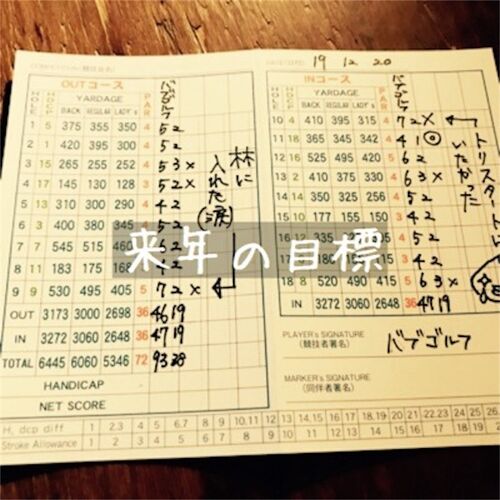 19 12 20
OUTコース
YARDAGE
HOLE
BACK REGULAR LADY's
PAR
バブゴルフ
1 5 375 355 350 4 52
2 1 420 395 300 4 52
3 15 265 255 252 4 53×
4 17 145 130 128 3 52×
5 42
6 3 400 380 345 5 52
7 7 545 515 460 62
8 11 183 175 168 42
9 9 530 495 405 5 72×
OUT 3173 3000 2698 36 4619
IN 3272 3060 2648 36 4719
TOTAL 6445 6060 5346 72 9338
HANDICAP
NET SCORE
林に
入れた
(涙)
INコース
YARDAGE
HOLE
BACK REGULAR LADY's
PAR
バブゴルフ
10 4 410 395 315 4 72×
11 18 365 345 342 4 41
12 16 525 495 420 5 62
13 2 410 375 330 4 63×
14 14 350 325 256 4 52
15 10 177 155 150 3 42
16 12 52
42
18 8 520 490 415 5 63×
IN 3272 3060 2648 36 4719
トリスタート
いたかった
PLAYER's SIGNATURE
(競技者署名)
バブゴルフ
MARKER's SIGNATURE
(同伴者署名)
来年の目標
H, dcp diff 1 2.3 4 5 6.7 8 9 10.11 12 13 14 15.16 17 18.19 20 21 22 23.24 25 26
Stroke Allowance 1 2 3 4 5 6 7 8 9 10 11 12 13 14 15 16 17 18 19 20